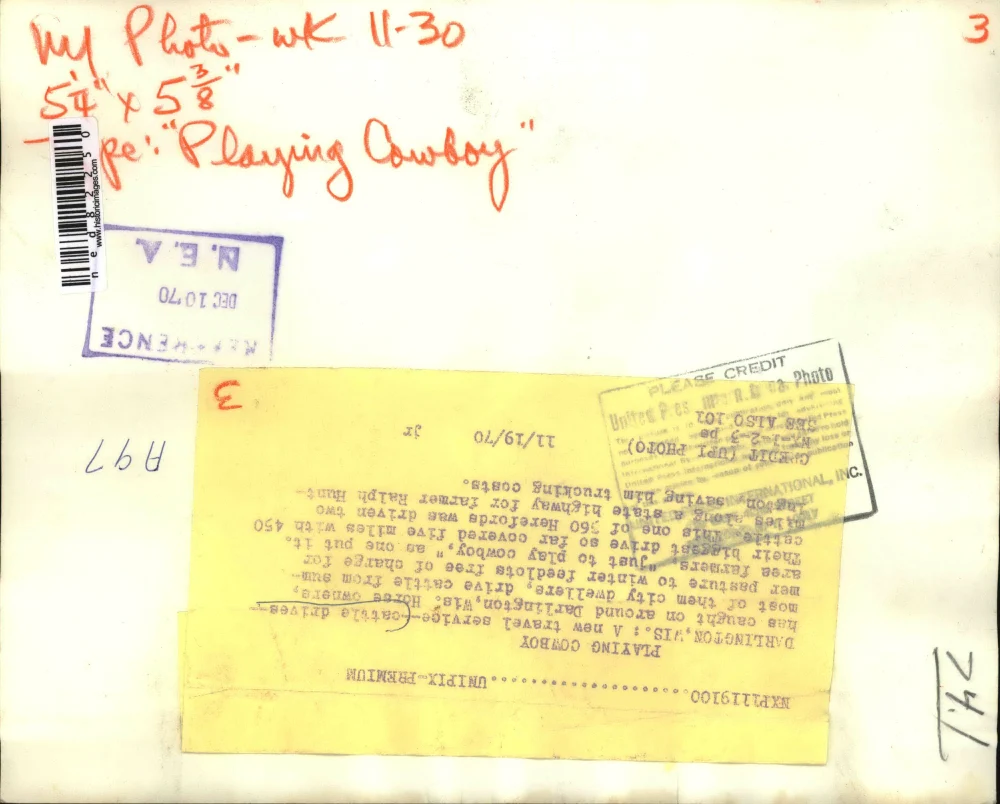 NY Photo - wk 11-30
3
5 1/4" x 5 3/8"
"Playing Cowboy"
www.historicimages.com
ned82250
N.E.A.
DEC 10 '70
REFERENCE
A97
3
NXP1119100......................UNIPIX-PREMIUM
PLAYING COWBOY
DARLINGTON,WIS.: A new travel service--cattle drives--
has caught on around Darlington,Wis. Horse owners,
most of them city dwellers, drive cattle from sum-
mer pasture to winter feedlots free of charge for
area farmers, "just to play cowboy," as one put it.
Their biggest drive so far covered five miles with 450
cattle. This one of 360 Herefords was driven two
miles along a state highway for farmer Ralph Hunt-
ington saving him trucking costs.
CREDIT (UPI PHOTO)
NY-1-2-3 pe
11/19/70 jr
SEE ALSO 101
PLEASE CREDIT
Photo
INTERNATIONAL, INC.